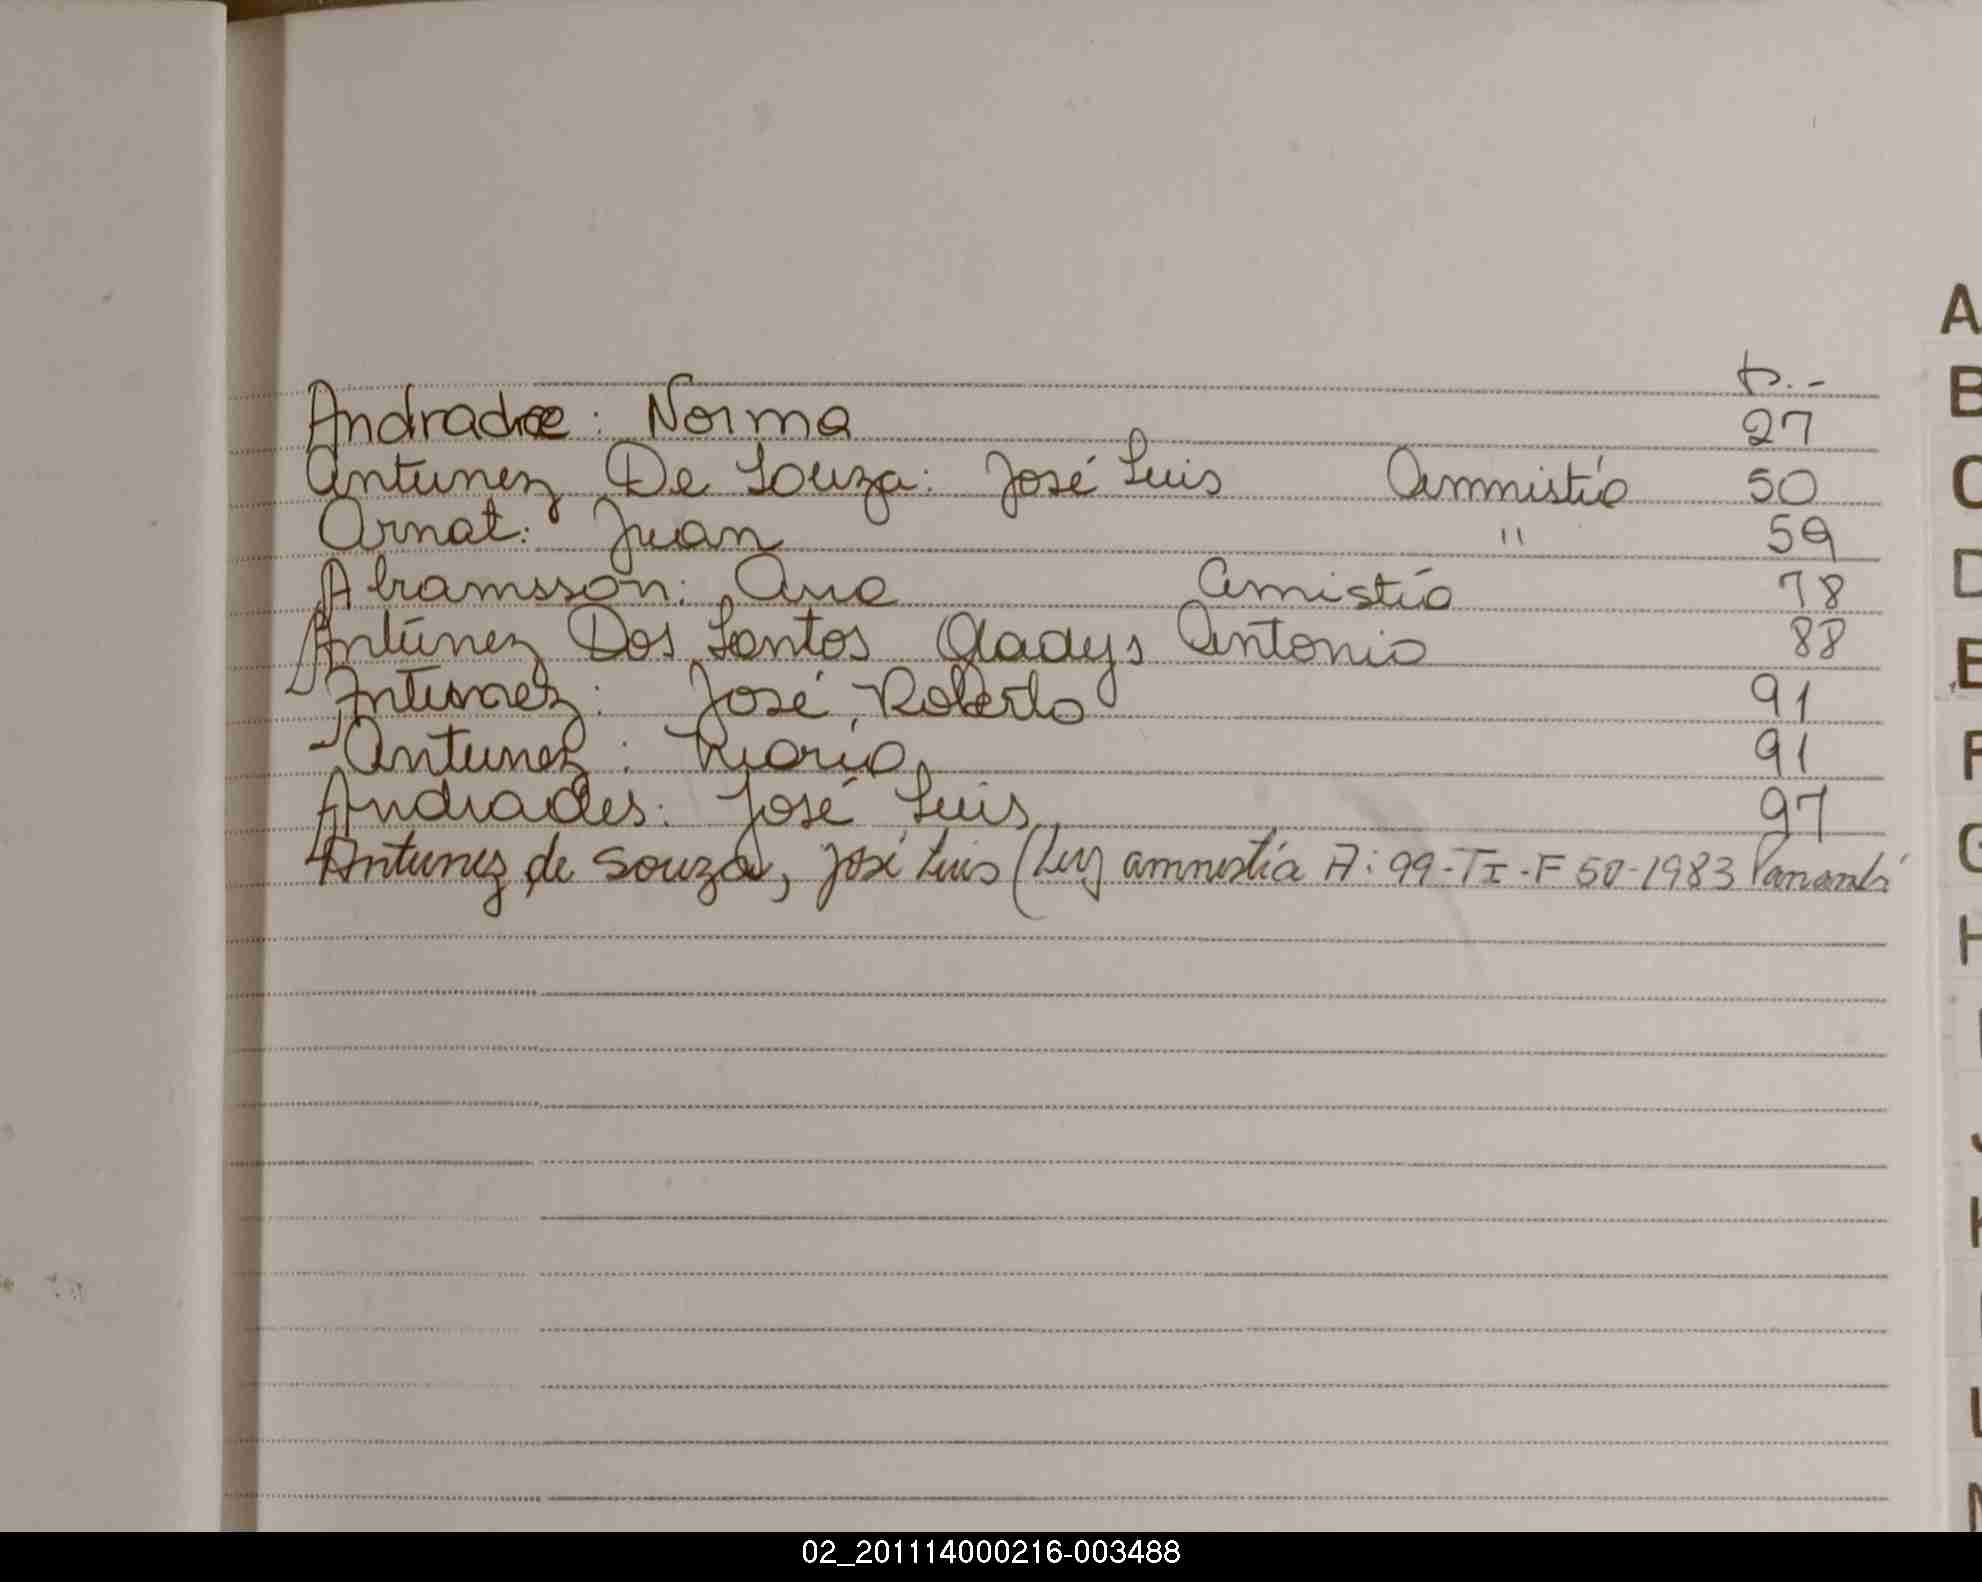 F.-
Andrade: Norma 27
Antunez De Souza: José Luis Ammistía 50
Arnat: Juan " 59
Abramsson: Ana Amistía 78
Antúnez Dos Santos Gladys Antonia 88
Antunez: José Roberto 91
Antunez: María 91
Andrades: José Luis 97
Antunez de Souza, José Luis (Ley amnistía A: 99-TI-F 50-1983 Panambí
A
B
C
D
E
F
G
H
J
K
L
02_201114000216-003488